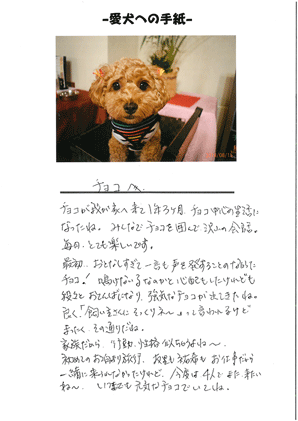 -愛犬への手紙-
チョコ へ
チョコが我が家へ来て1年3ヶ月、チョコ中心の生活に
なったね。みんなでチョコを囲んで沢山の会話。
毎日、とても楽しいです。
最初、おとなしすぎて一言も声を発することのなかった
チョコ！ 鳴けない子なんかと心配もしたけれども
段々とおてんばになり、強気なチョコが出てきたね。
良く「飼い主さんにそっくりネ〜」って言われるけど
まったく、その通りだね。
家族だから、行動、性格似ちゃうよね〜。
初めてのお泊り旅行、
お仕事だから
一緒に来れなかったけれど、今度は4人でまた来たい
ね〜。いつまでも元気なチョコでいてね。